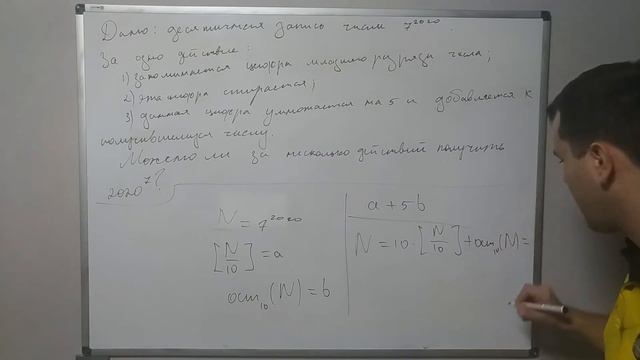 Дано: десятичная запись числа 7^2020.
За одно действие:
1) запоминается цифра младшего разряда числа;
2) эта цифра стирается;
3) данная цифра умножается на 5 и добавляется к
получившемуся числу.
Можно ли за несколько действий получить
2020^7?
N = 7^2020
[N/10] = a
ост₁₀(N) = b
a + 5b
N = 10·[N/10] + ост₁₀(N) =